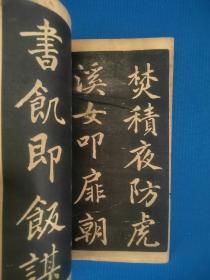 焚積夜防虎
溪女叩扉朝
書飢即飯謀